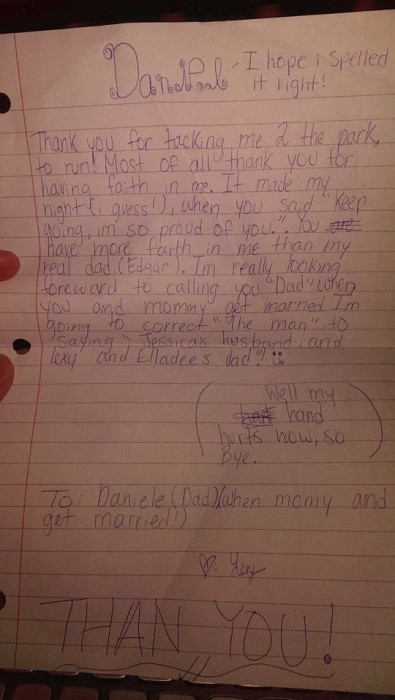 Daniel - I hope i spelled
it right!
Thank you for tacking me 2 the park,
to run! Most of all thank you for
having faith in me. It made my
night (i guess!), when you said "Keep
going, im so proud of you.". You
have more faith in me than my
real dad.(Edgar). I'm really looking
foreward to calling you "Dad" when
you and mommy get married I'm
going to correct "The man", to
saying "Jessica's husband, and
lexy and Elladee's dad"!
(Well my
hand
hurts now, so
Bye.)
To: Daniele (Dad)(when momy and
get married!)
♡: Lexy
THAN YOU!